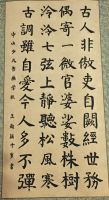 古人非傲吏自闕經世務
偶寄一微官婆娑數株樹
泠泠七弦上靜聽松風寒
古調雖自愛今人多不彈